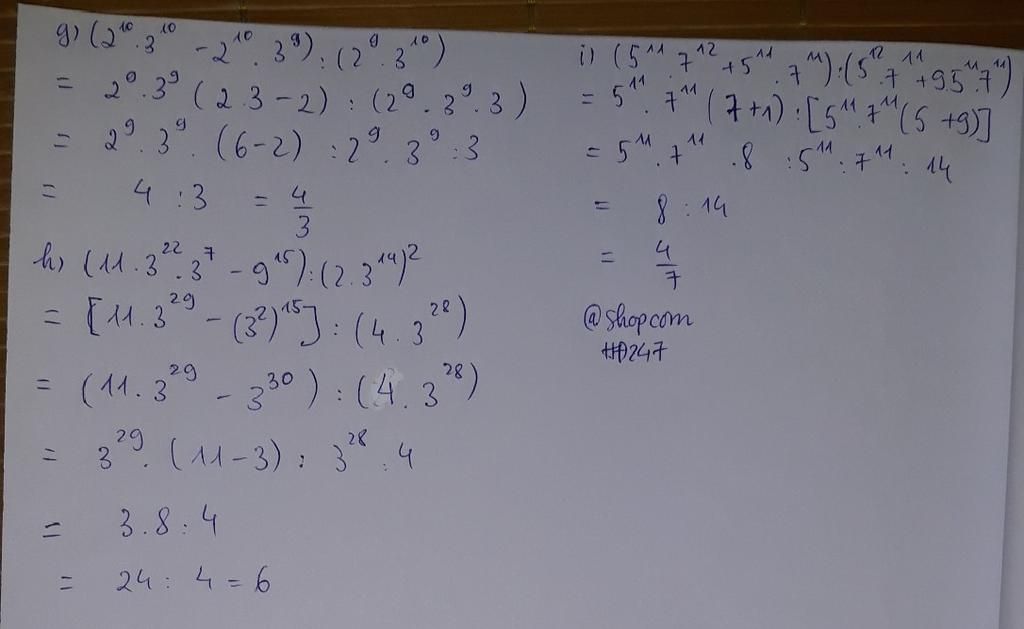 g) (2¹⁰.3¹⁰ - 2¹⁰.3⁹) : (2⁹.3¹⁰)
= 2⁹.3⁹ (2.3-2) : (2⁹.3⁹.3)
= 2⁹.3⁹.(6-2) : 2⁹.3⁹:3
= 4 : 3 = 4/3
h) (11.3²².3⁷ - 9¹⁵):(2.3¹⁴)²
= [11.3²⁹ - (3²)¹⁵] : (4.3²⁸)
= (11.3²⁹ - 3³⁰) : (4.3²⁸)
= 3²⁹.(11-3) : 3²⁸:4
= 3.8:4
= 24: 4 = 6
i) (5¹¹.7¹² + 5¹¹.7¹¹):(5¹².7¹¹ + 9.5¹¹.7¹¹)
= 5¹¹.7¹¹ (7+1) : [5¹¹.7¹¹(5+9)]
= 5¹¹.7¹¹.8 :5¹¹:7¹¹: 14
= 8 : 14
= 4/7
@shopcom
HD247